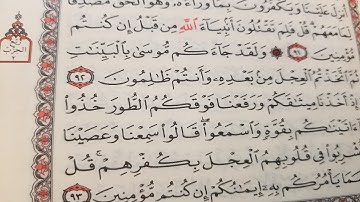 أُنزِلَ عَلَيْنَا وَيَكْفُرُونَ بِمَا وَرَآءَهُۥ وَهُوَ ٱلْحَقُّ مُصَدِّقًا
لِّمَا مَعَهُمْ قُلْ فَلِمَ تَقْتُلُونَ أَنۢبِيَآءَ ٱللَّهِ مِن قَبْلُ إِن كُنتُم
مُّؤْمِنِينَ ٩١ وَلَقَدْ جَآءَكُم مُّوسَىٰ بِٱلْبَيِّنَٰتِ
ٱتَّخَذْتُمُ ٱلْعِجْلَ مِنۢ بَعْدِهِۦ وَأَنتُمْ ظَٰلِمُونَ ٩٢
أَخَذْنَا مِيثَٰقَكُمْ وَرَفَعْنَا فَوْقَكُمُ ٱلطُّورَ خُذُوا۟
ءَاتَيْنَٰكُم بِقُوَّةٍ وَٱسْمَعُوا۟ قَالُوا۟ سَمِعْنَا وَعَصَيْنَا
أُشْرِبُوا۟ فِى قُلُوبِهِمُ ٱلْعِجْلَ بِكُفْرِهِمْ قُلْ
يَأْمُرُكُم بِهِۦٓ إِيمَٰنُكُمْ إِن كُنتُم مُّؤْمِنِينَ ٩٣